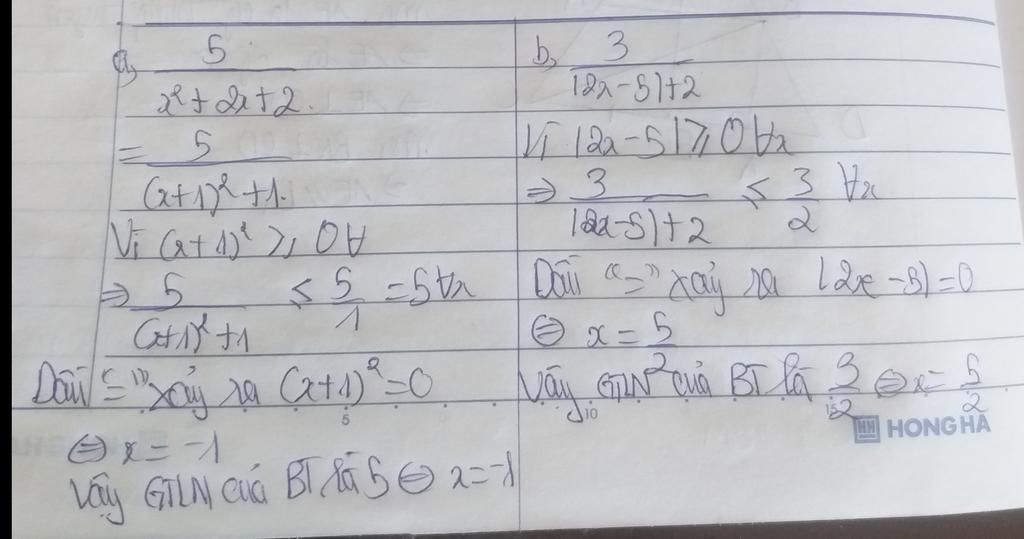 a, 5
x² + 2x + 2.
= 5
(x+1)² + 1.
Vì (x+1)² ≥ 0 ∀
⇒ 5 ≤ 5 = 5 ∀x
(x+1)² + 1 1
Dấu "=" xảy ra (x+1)² = 0
⇔ x = -1
Vậy GTLN của BT là 5 ⇔ x = -1
b, 3
|2x-5|+2
Vì |2x-5| ≥ 0 ∀x
⇒ 3 ≤ 3 ∀x
|2x-5|+2 2
Dấu "=" xảy ra |2x-5| = 0
⇔ x = 5
2
Vậy GTLN của BT là 3 ⇔ x = 5
2 2
5 10 15
HH HONG HA